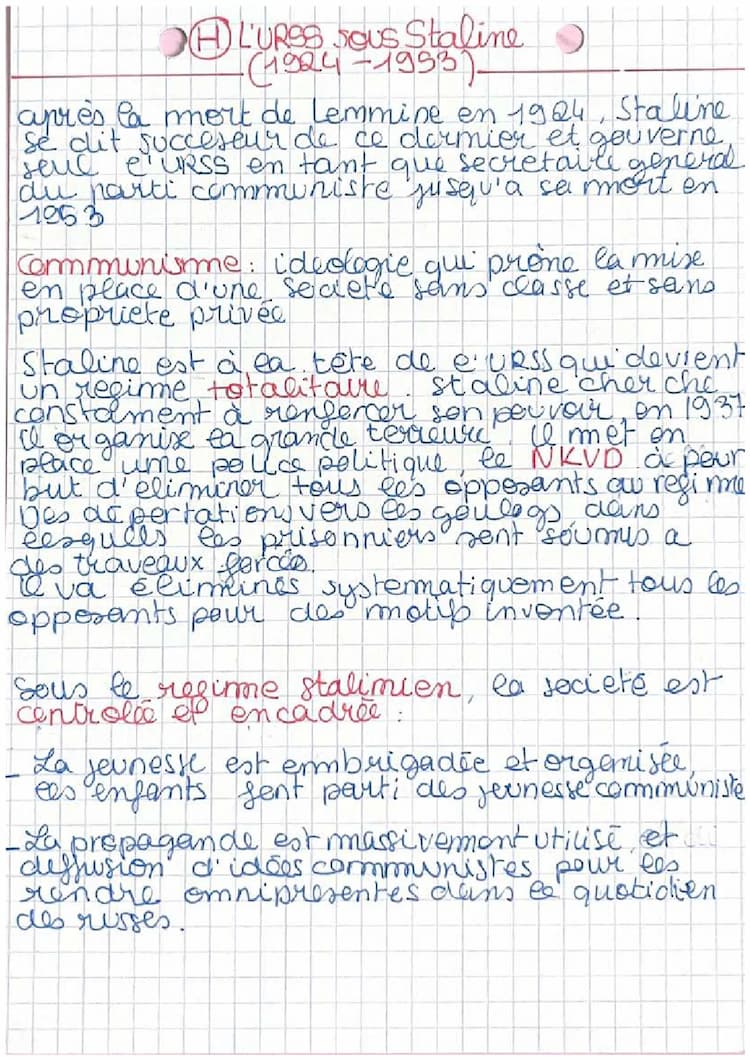 (H) L'URSS sous Staline
(1924-1953)
après la mort de Lemmine en 1924, Staline
se dit succeseur de ce dermier et gouverne
seul l'URSS en tant que secretaire general
du parti communiste jusqu'a sa mort en
1953
Communisme : ideologie qui prône la mise
en place d'une societe sans classe et sans
propriete privée
Staline est à la tête de l'URSS qui devient
un regime totalitaire. Staline cherche
constalment à renforcer son pouvoir, en 1937
il organise la grande terreure. il met en
place une police politique, le NKVD a pour
but d'eliminer tous les opposants au regime
Des deportations vers les goulags dans
lesquels les prisonniers sont soumis a
des traveaux forcés.
il va élimines systematiquement tous les
opposants pour des motifs inventée.
Sous le regime stalimien, la societé est
controlée et encadrée :
- La jeunesse est embrigadée et organisée,
les enfants font parti des jeunesse communiste
- La propagande est massivement utilisé, et
deffusion d'idées communistes pour les
rendre omnipresentes dans le quotidien
des russes.